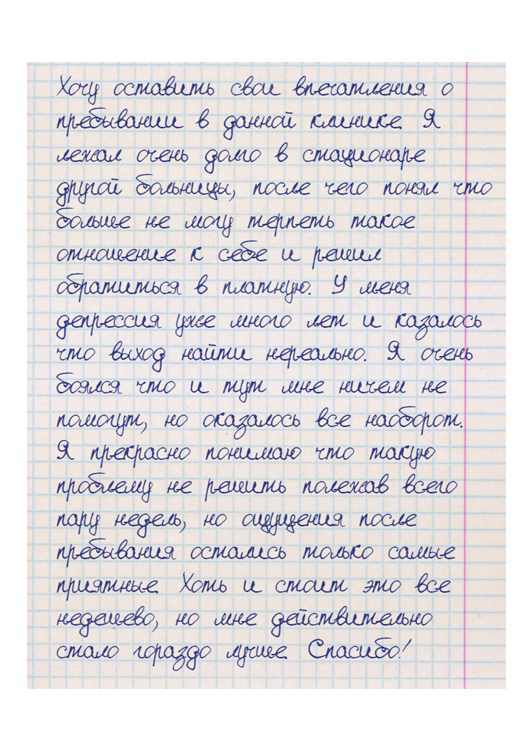 Хочу оставить свои впечатления о
пребывании в данной клинике. Я
лежал очень долго в стационаре
другой больницы, после чего понял что
больше не могу терпеть такое
отношение к себе и решил
обратиться в платную. У меня
депрессия уже много лет и казалось
что выход найти нереально. Я очень
боялся что и тут мне ничем не
помогут, но оказалось все наоборот.
Я прекрасно понимаю что такую
проблему не решить полежав всего
пару недель, но ощущения после
пребывания остались только самые
приятные. Хоть и стоит это все
недешево, но мне действительно
стало гораздо лучше. Спасибо!